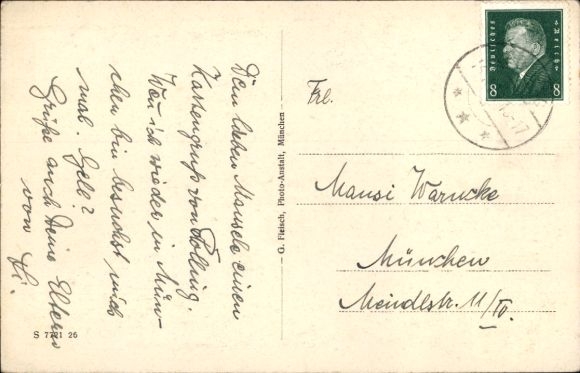 Dem lieben Mausele einen
Kartengruß von Polling.
Wenn ich wieder in Mün-
chen bin besuchst mich
mal. Gell?
Grüße auch Deine Eltern
von
S 7721 26
- G. Fleisch, Photo-Anstalt, München -
Deutsches Reich
8 8
Frl.
Mausi Warncke
München
Meindlstr. 11/IV.